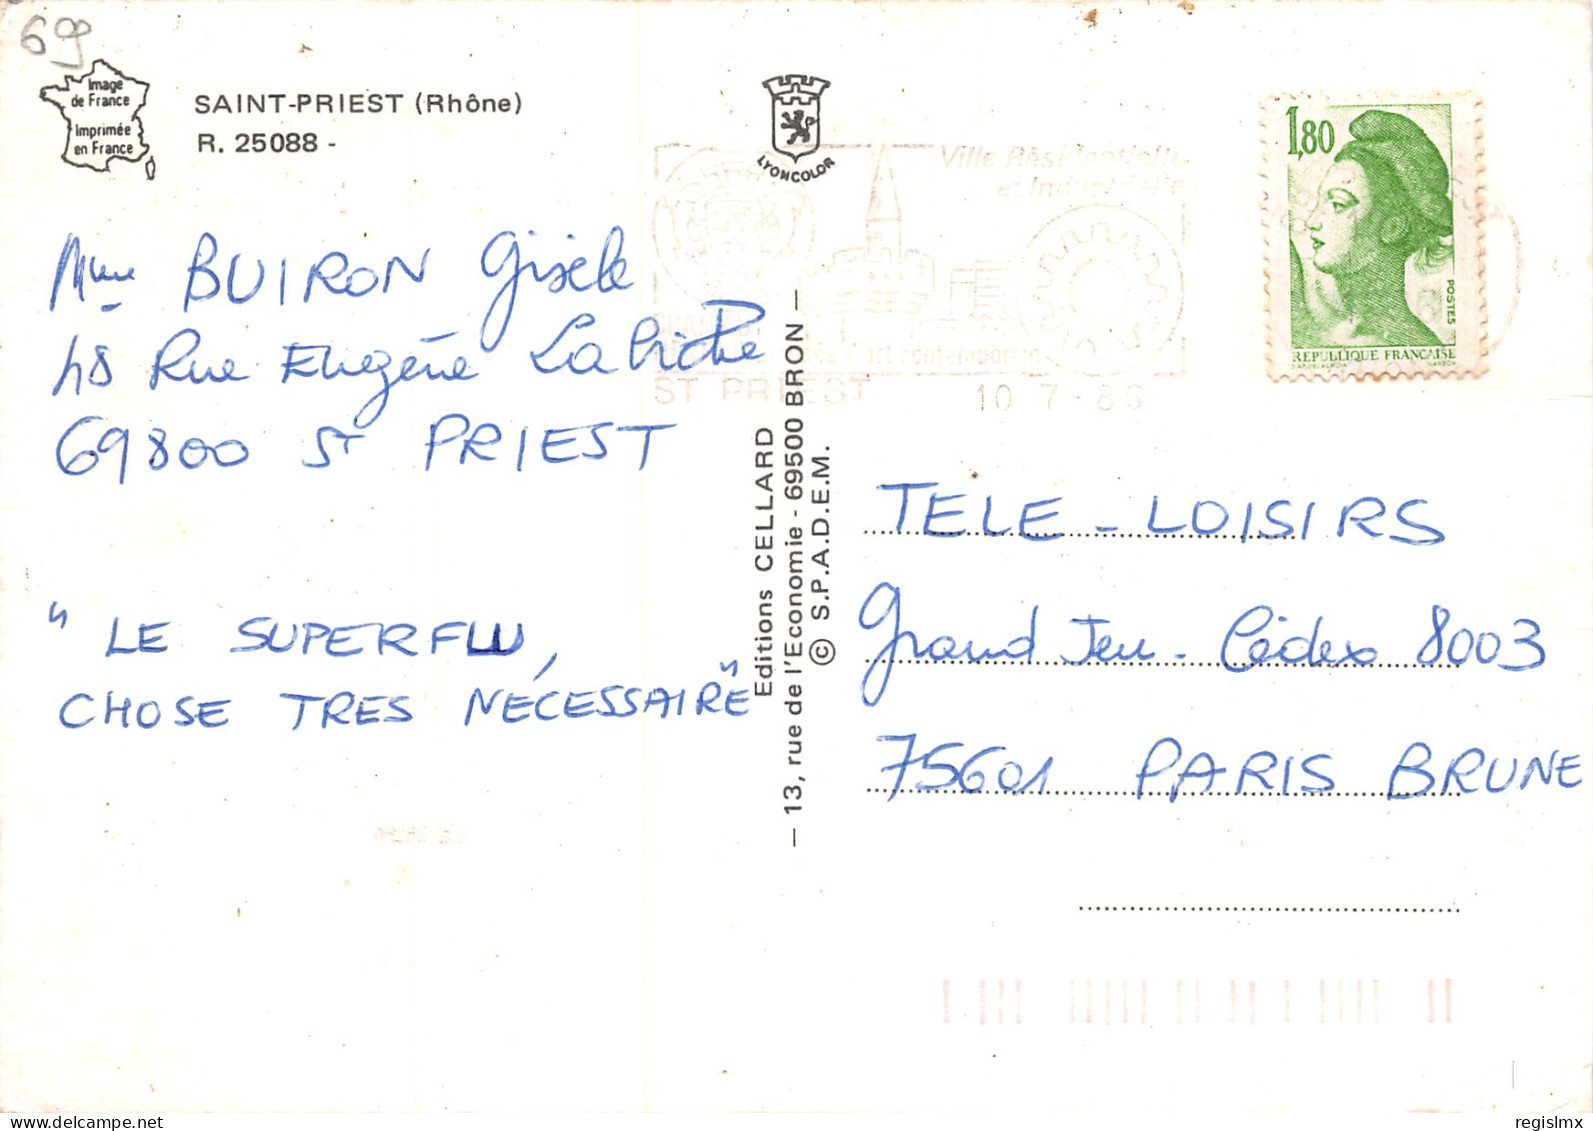 69
Image
de France
Imprimée
en France
SAINT-PRIEST (Rhône)
R. 25088 -
LYONCOLOR
Ville Résidentielle
et Industrielle
d'art contemporain
ST PRIEST 10 - 7 - 86
1,80
POSTES
REPUBLIQUE FRANÇAISE
Mme BUIRON Gisèle
48 Rue Eugène Labiche
69800 St PRIEST
"LE SUPERFLU,
CHOSE TRES NÉCESSAIRE"
Editions CELLARD
— 13, rue de l'Economie - 69500 BRON —
© S.P.A.D.E.M.
TELE - LOISIRS
Grand Jeu - Cédex 8003
75601 PARIS BRUNE
regislmx